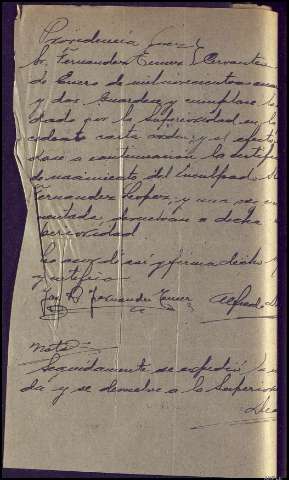 Providencia Juez
Sr. Fernandez Ferrer Cervantes
de Enero de mil novecientos cuar
y dos. Guardese y cumplase lo
dado por la Superioridad en la
cedente carta orden y al efecto
dace a continuación la certific
de nacimiento del inculpado
Fernandez Lopez, y una vez cu
mentada, devuelvase a dicha
perioridad
Lo acordó así y firma dicho
y certifico
Fernandez Ferrer Alfredo
Nota=
Seguidamente se expidió la
da y se devuelve a la Superior